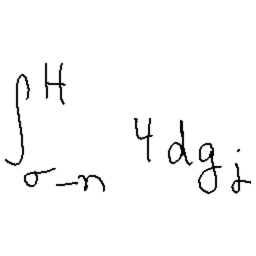 \int_{\sigma-n}^{H} 4dg_{j}